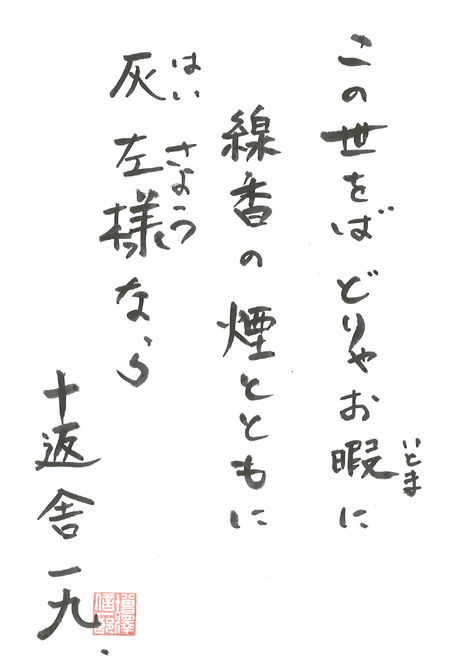 この世をばどりやお暇に
いとま
線香の煙とともに
灰左様なら
はい さよう
十返舎一九